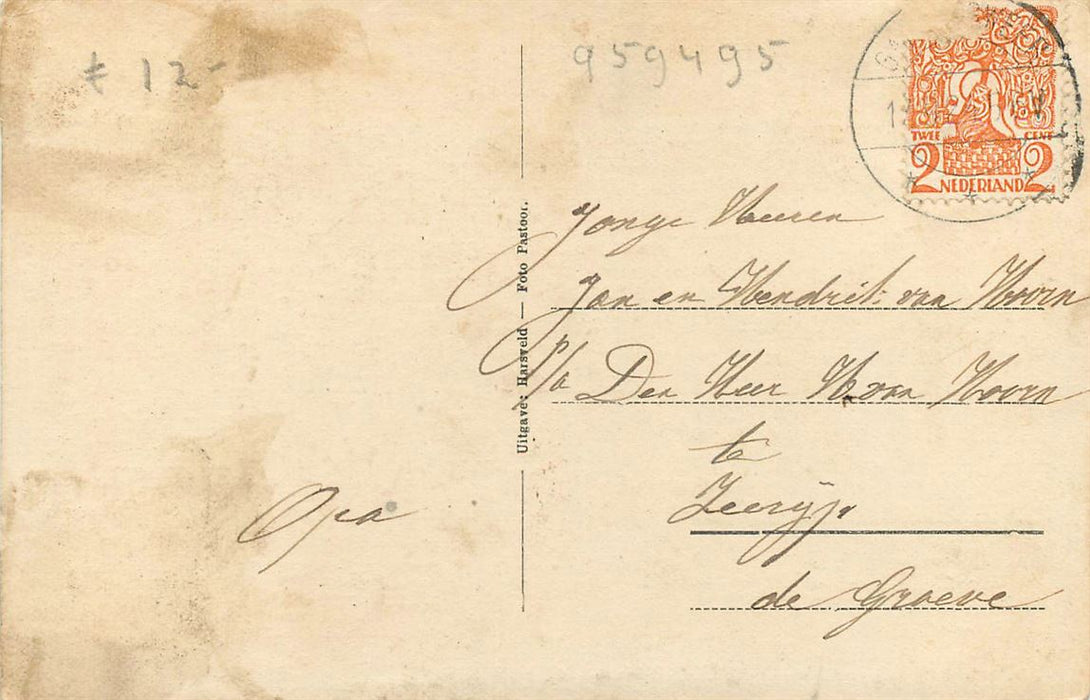 12-
959495
TWEE CENT
2 NEDERLAND 2
Jonge Heeren
Jan en Hendrik van Hoorn
P/a Den Heer H. van Hoorn
te
Zeerijp.
de Groeve
Opa
Uitgave: Harsveld — Foto Pastoor.